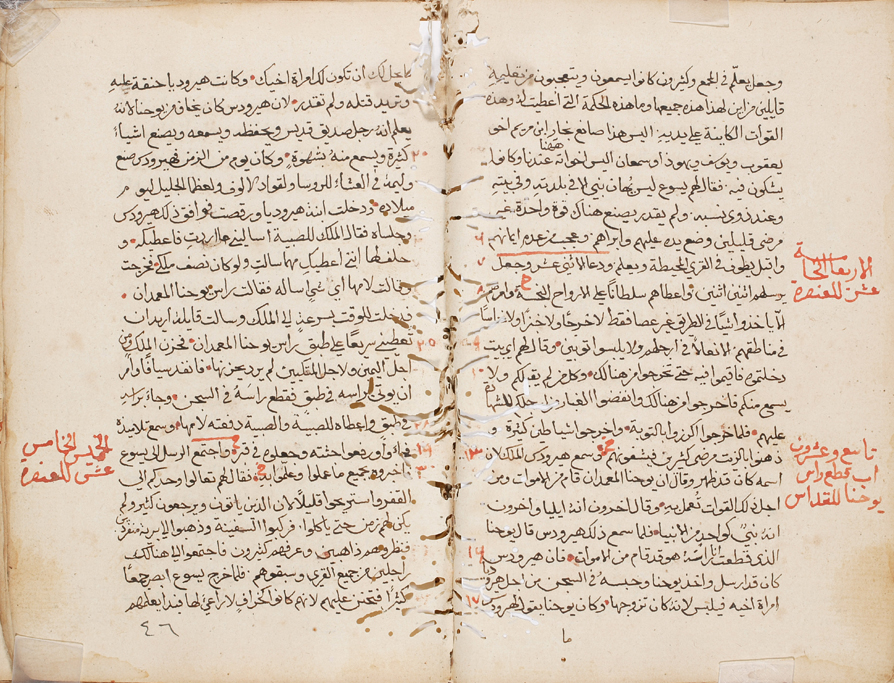 وجعل يعلّم في المجمع وكثيرون كانوا يسمعون ويتعجبون من تعليمه
قايلين من اين لهذا هذه جميعها وما هذه الحكمة التي اعطيت له وهذه
القوات الكاينة على يديه اليس هذا صانع نجار ابن مريم اخو
يعقوب ويوسف ويهوذا وسمعان اليس اخواته هٰهنا عندنا وكانوا
يشكون فيه فقال لهم يسوع ليس يُهان نبي الا في بلدته وفي بيته
وعند ذوي نسبه ولم يقدر يصنع هناك قوة واحدة غير
مرضى قليلين وضع يده عليهم وابراهم وعجب من عدم ايمانهم ٦
واقبل يطوف في القرى المحيطة ويعلم ودعا الاثني عشر وجعل ٧
يرسلهم اثنين اثنين واعطاهم سلطانا على الارواح النجسة وامرهم ٨
الا ياخذوا شيا في الطريق غير عصا فقط لا خرجا ولا خبزا ولا نحاسا
في مناطقهم الا نعالا في ارجلهم ولا يلبسوا ثوبين وقال لهم اي بيت
دخلتموه فاقيموا فيه حتى تخرجوا من هنالك وكل من لم يقبلكم ولا ١٠
يسمع منكم فاخرجوا من هنالك وانفضوا الغبار من ارجلكم للشهادة
عليهم فلما خرجوا اكرزوا بالتوبة واخرجوا شياطين كثيرة و
دهنوا بالزيت مرضى كثيرين فيشفونهم وسمع هيرودس الملك لان ١٣
اسمه كان قد ظهر وقال ان يوحنا المعمدان قام من الاموات ومن
اجل ذلك القوات تُعمل به وقال اخرون انه ايليا واخرون
انه نبيٌ كواحد من الانبيا فلما سمع ذلك هيرودس قال يوحنا
الذي قطعت انا راسه هو قد قام من الاموات فان هيرودس ١٦
كان قد ارسل واخذ يوحنا وحبسه في السجن من اجل هيروديا
امراة اخيه فيلبس لانه كان تزوجها وكان يوحنا يقول لهيرودس ١٧
ما
الاربعا الخامسة
عشر للعنصرة
تاسع وعشرون
اب قطع راس
يوحنا للقداس
ما يحل لك ان تكون لك امراة اخيك وكانت هيروديا حنقة عليه
وتريد قتله ولم تقدر لان هيرودس كان يخاف من يوحنا لانه
يعلم انه رجل صديق قديس ويحفظه ويسمعه ويصنع اشياءً
كثيرة ويسمع منه بشهوة وكان يوم من الزمن فهيرودس صنع ٢٠
وليمة في العشاء للروسا والقواد الالوف ولعظما الجليل ليوم
ميلاده ودخلت ابنة هيروديا ورقصت فوافق ذلك هيرودس
وجلساه فقال الملك للصبية اساليني ما اردت فاعطيك و
حلف لها انني اعطيك مهما سالت ولو كان نصف ملكي فخرجت
وقالت لامها اي شي اساله فقالت راس يوحنا المعمدان
فدخلت للوقت بسرعة الى الملك وسالت قايلة اريد ان
تعطيني سريعا على طبق راس يوحنا المعمدان فحزن الملك ومن ٢٥
اجل اليمين ولاجل المتكيين لم يرد يحزنها فانفد سيافا وامر
ان يوتى براسه في طبق فقطع راسه في السجن وجاء براسه
في طبق واعطاه للصبية والصبية دفعته لامها وسمع تلاميذه
فجاءوا ورفعوا جثته وجعلوه في قبر واجتمع الرسل الى يسوع
فاخبروه بجميع ما عملوا وعلموا فقال لهم تعالوا وحدكم الى ٣٠
القفر واستريحوا قليلا لان الذين ياتون ويرجعون كثير ولم
يكن لهم زمن حتى ياكلوا فركبوا السفينة وذهبوا الى برية منفردين
فنظروهم ذاهبين وعرفهم كثيرون فاجتمعوا الى هنالك
راجلين من جميع القرى وسبقوهم فلما خرج يسوع ابصر جمعًا
كثيرًا فتحنن عليهم لانهم كانوا كخراف لا راعي لها فبدا يعلمهم
الخميس الخامس
عشر للعنصرة
٤٦